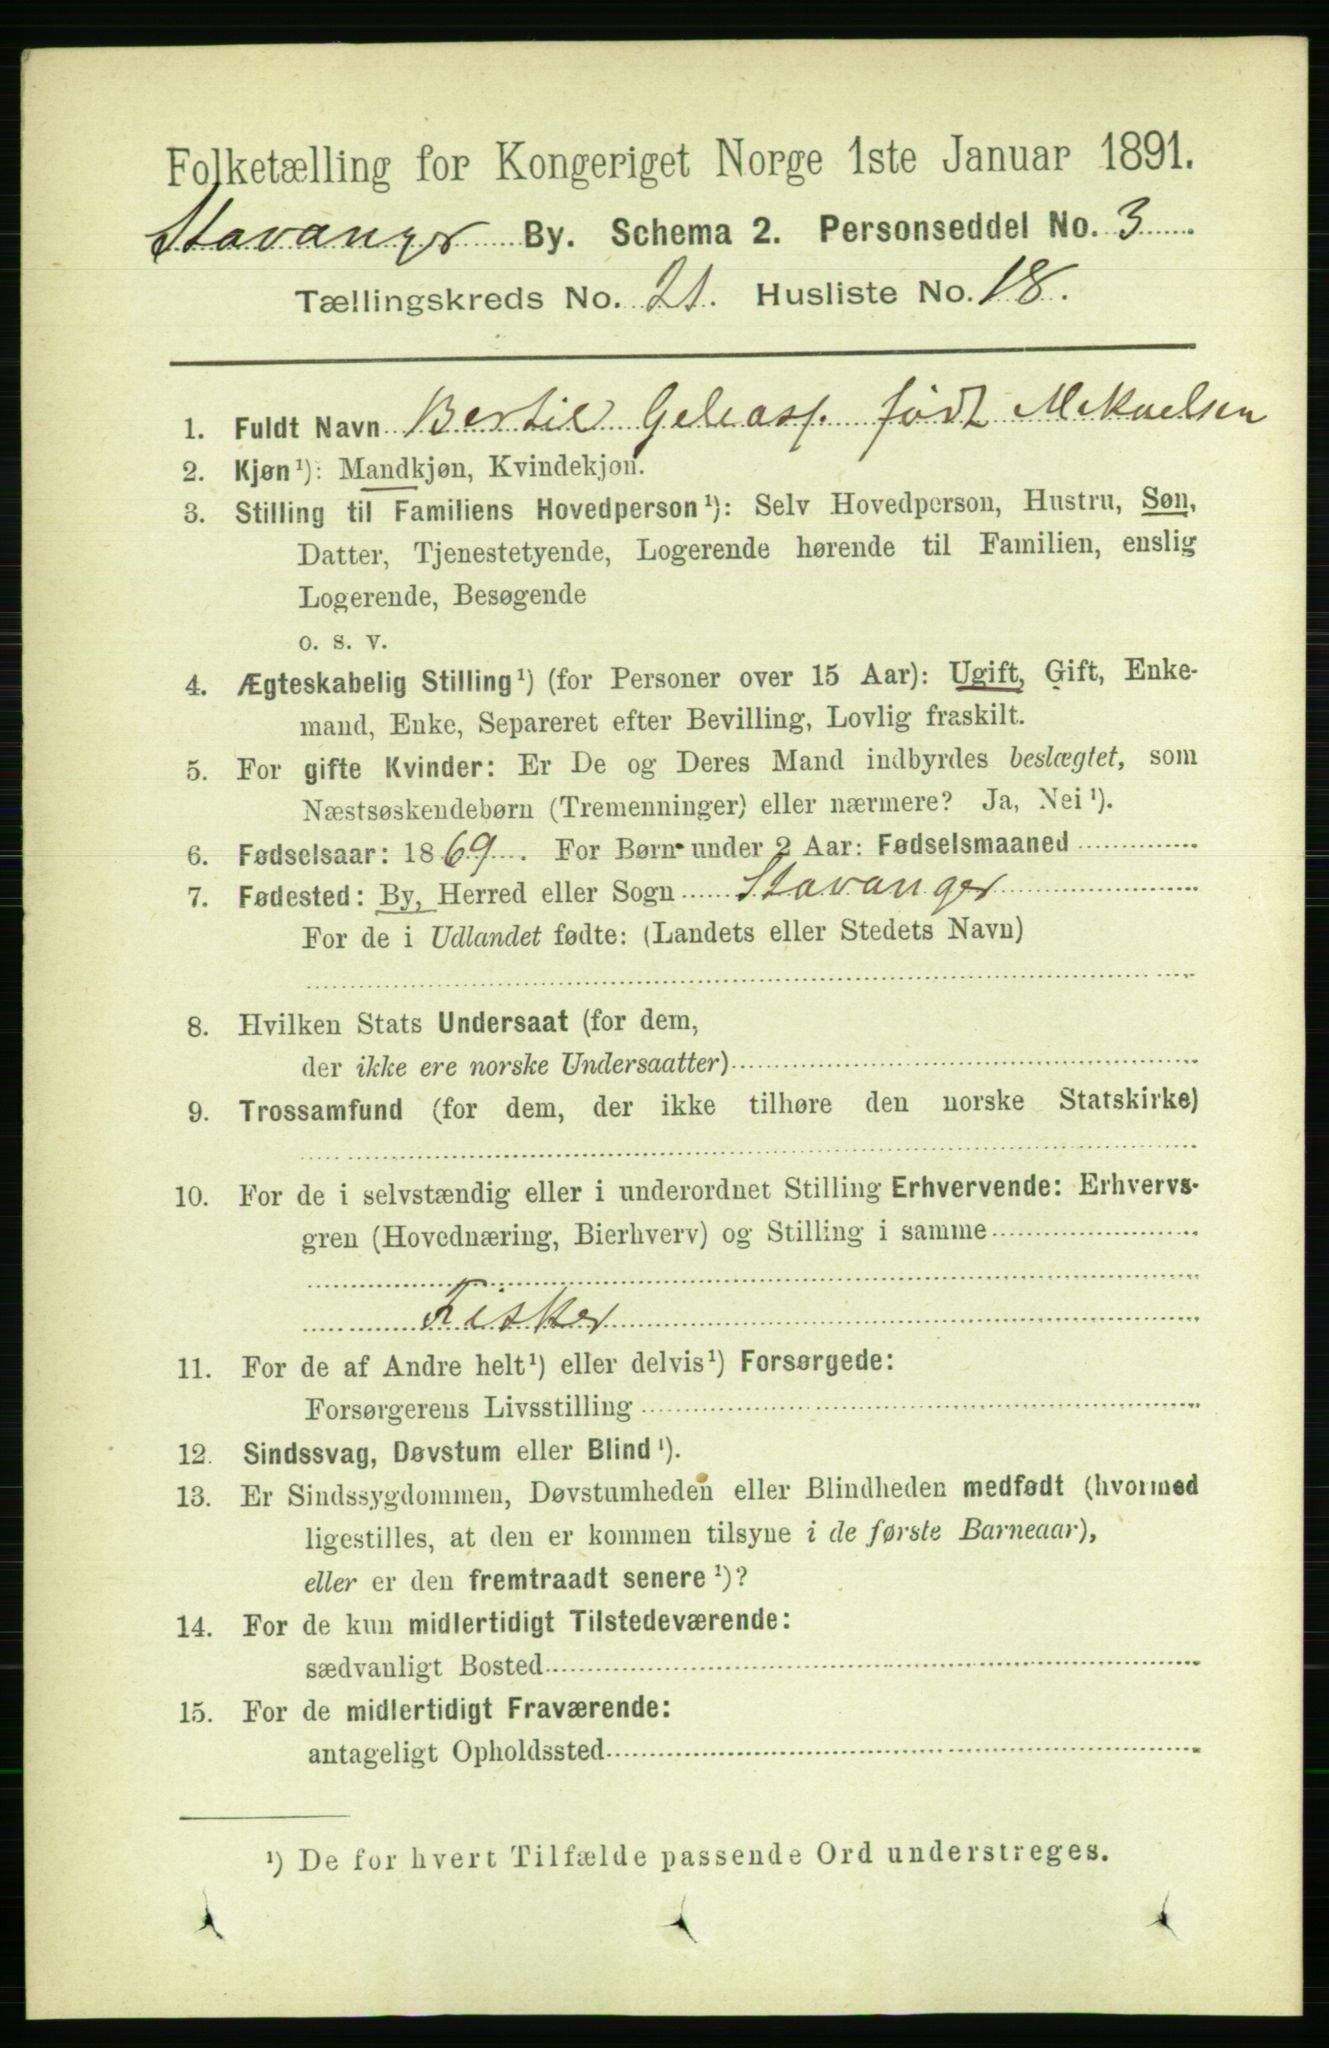 Folketælling for Kongeriget Norge 1ste Januar 1891.
Stavanger By. Schema 2. Personseddel No. 3
Tællingskreds No. 21. Husliste No. 18.
1. Fuldt Navn Bertil Geleasf. født Mekaelsen
2. Kjøn ¹): Mandkjøn, Kvindekjøn.
3. Stilling til Familiens Hovedperson ¹): Selv Hovedperson, Hustru, Søn,
Datter, Tjenestetyende, Logerende hørende til Familien, enslig
Logerende, Besøgende
o. s. v.
4. Ægteskabelig Stilling ¹) (for Personer over 15 Aar): Ugift, Gift, Enke-
mand, Enke, Separeret efter Bevilling, Lovlig fraskilt.
5. For gifte Kvinder: Er De og Deres Mand indbyrdes beslægtet, som
Næstsøskendebørn (Tremenninger) eller nærmere? Ja, Nei ¹).
6. Fødselsaar: 1869. For Børn under 2 Aar: Fødselsmaaned
7. Fødested: By, Herred eller Sogn Stavanger
For de i Udlandet fødte: (Landets eller Stedets Navn)
8. Hvilken Stats Undersaat (for dem,
der ikke ere norske Undersaatter)
9. Trossamfund (for dem, der ikke tilhøre den norske Statskirke)
10. For de i selvstændig eller i underordnet Stilling Erhvervende: Erhvervs-
gren (Hovednæring, Bierhverv) og Stilling i samme
Fisker
11. For de af Andre helt ¹) eller delvis ¹) Forsørgede:
Forsørgerens Livsstilling
12. Sindssvag, Døvstum eller Blind ¹).
13. Er Sindssygdommen, Døvstumheden eller Blindheden medfødt (hvormed
ligestilles, at den er kommen tilsyne i de første Barneaar),
eller er den fremtraadt senere ¹)?
14. For de kun midlertidigt Tilstedeværende:
sædvanligt Bosted
15. For de midlertidigt Fraværende:
antageligt Opholdssted
¹) De for hvert Tilfælde passende Ord understreges.